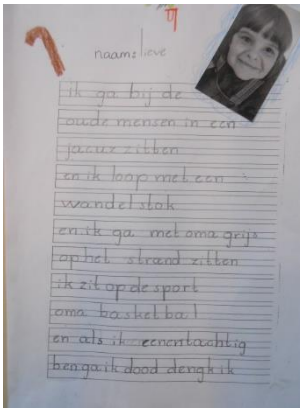 naam: lieve
ik ga bij de
oude mensen in een
jacuzzitten
en ik loop met een
wandelstok
en ik ga met oma grijs
op het strand zitten
ik zit op de sport
oma basketbal
en als ik eenentachtig
ben ga ik dood dengk ik